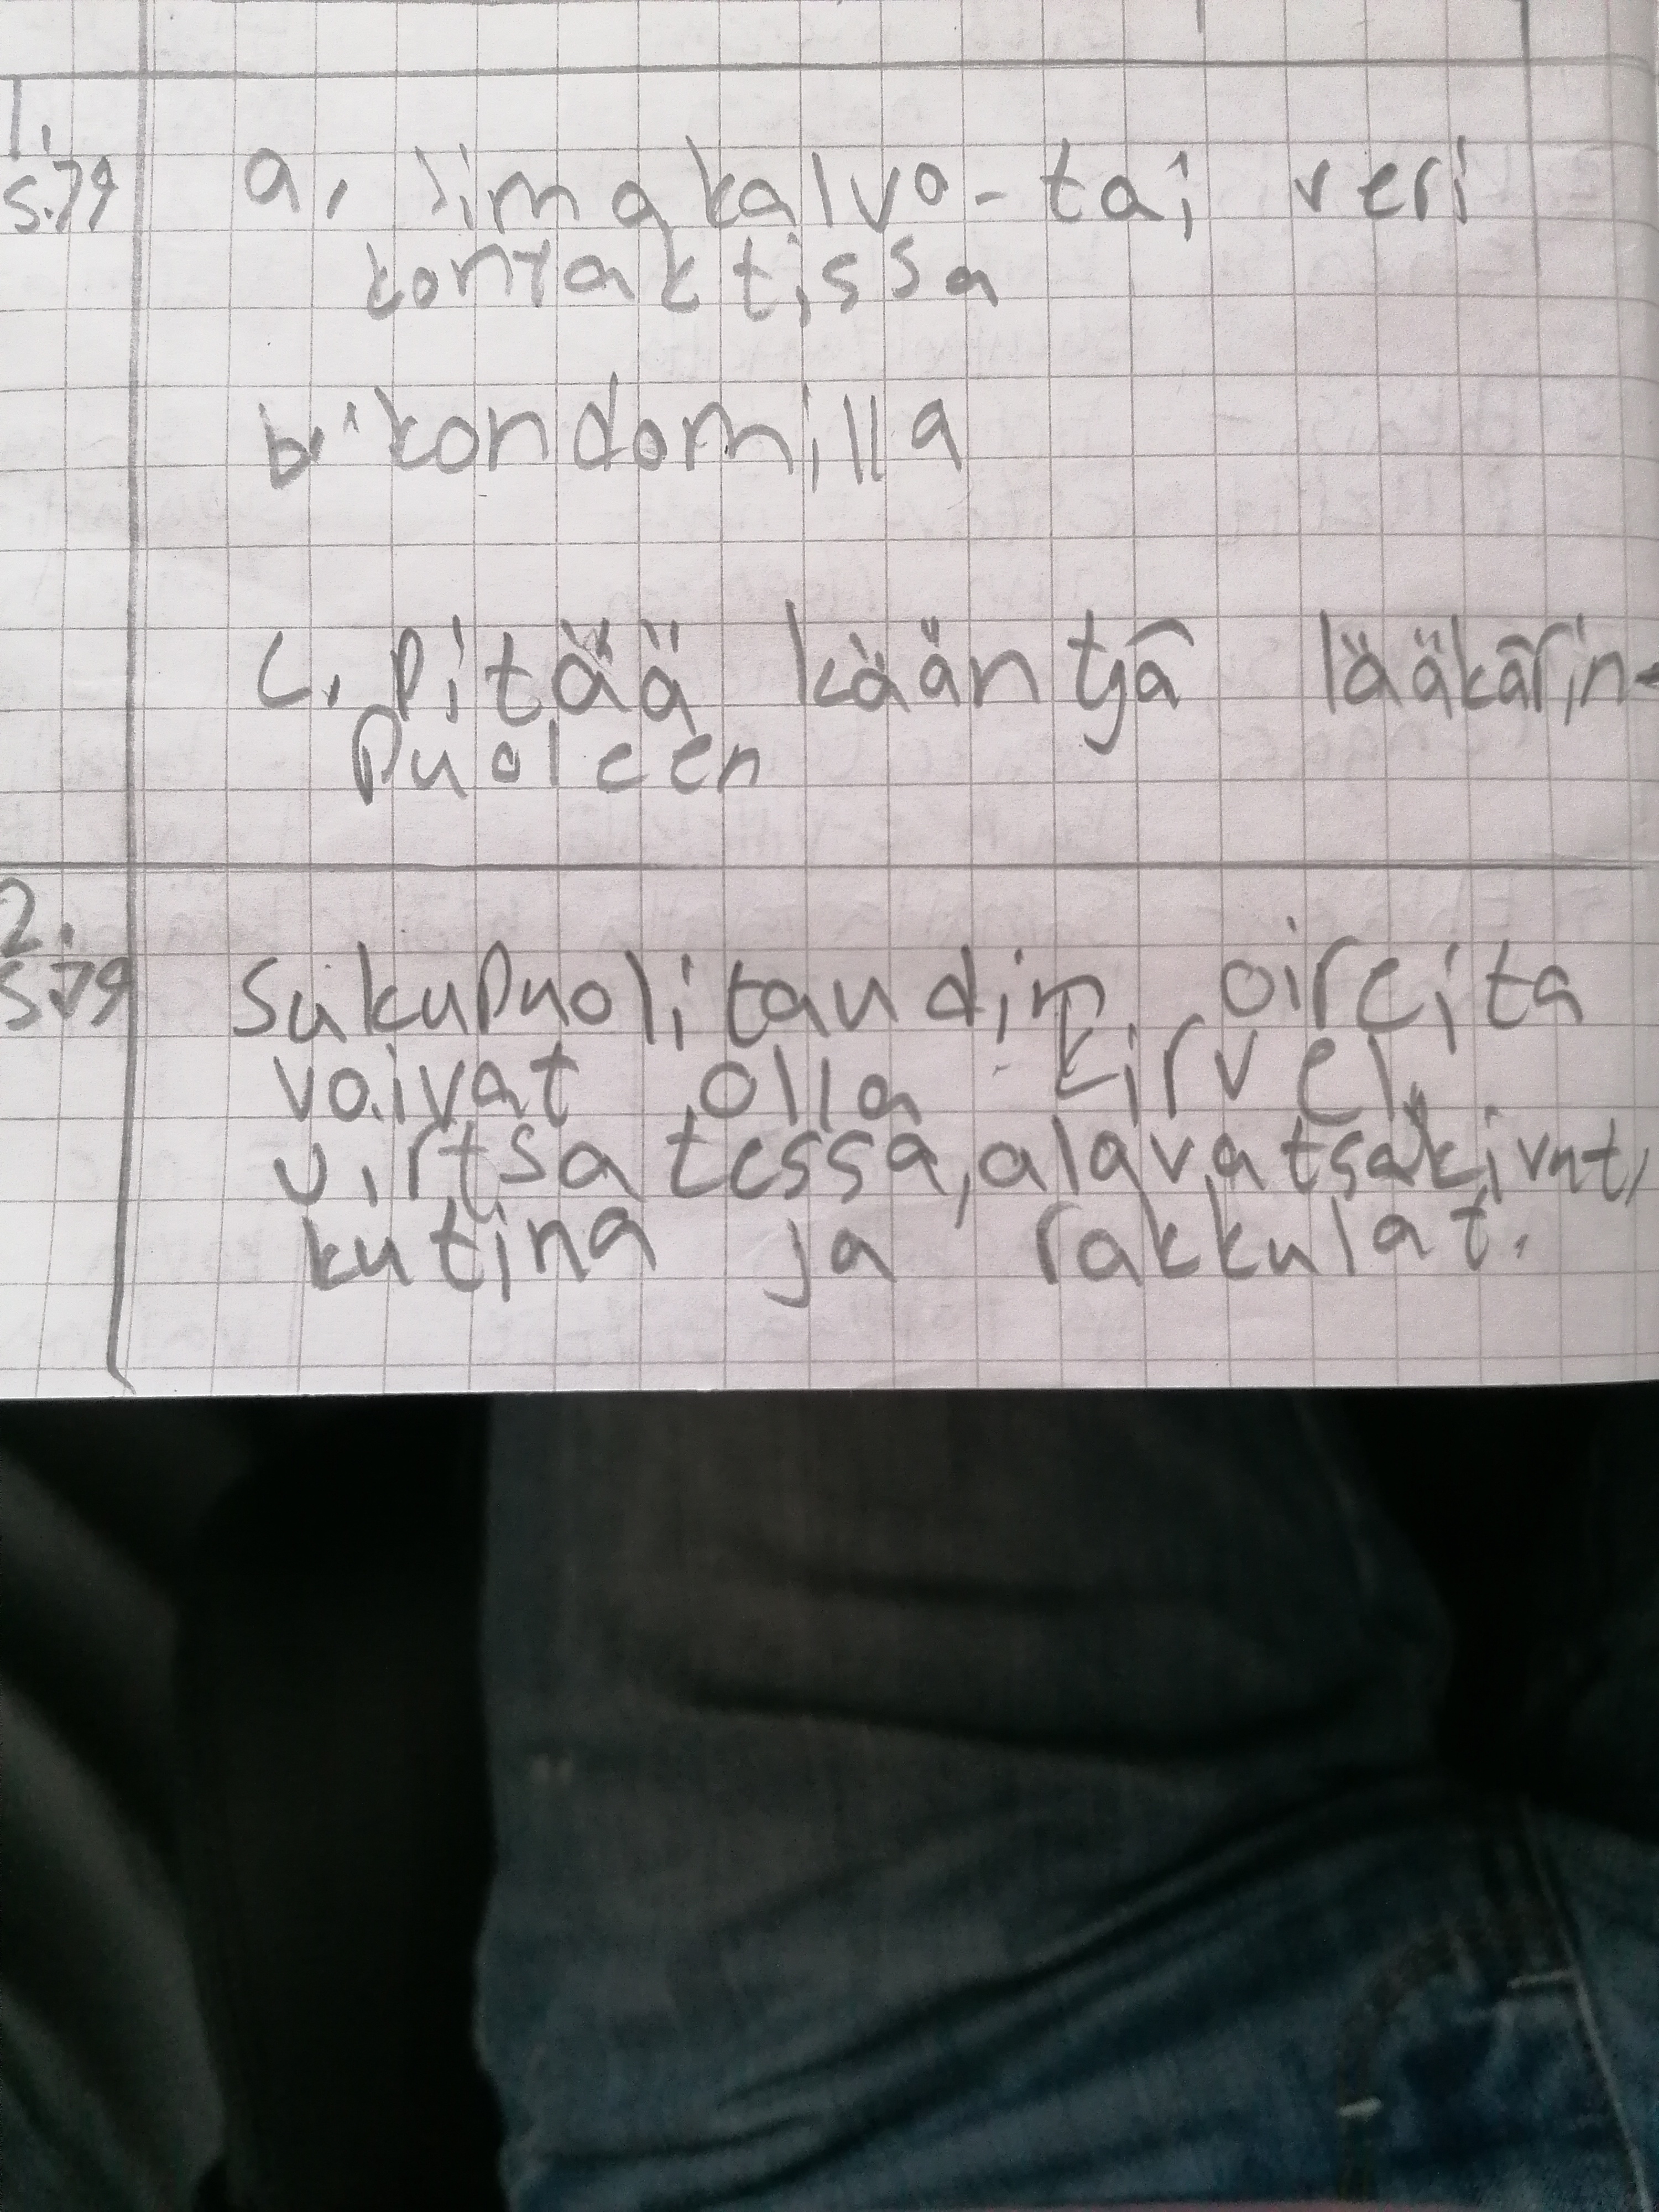 1.
s.79
a. limakalvo- tai veri
kontaktissa
b. kondomilla
c. Pitää kääntjä lääkärin-
Puoleen
2.
s.79
Sukupuolitaudin oireita
voivat olla kirvely
virtsatessa, alavatsakivut,
kutina ja rakkulat.